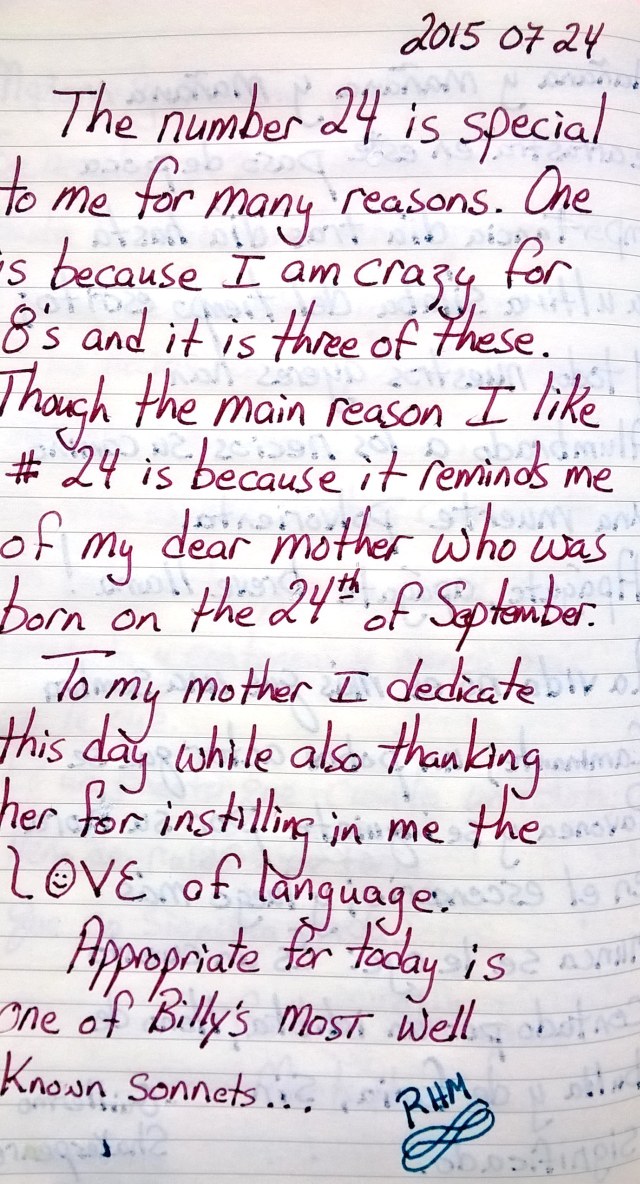 2015 07 24
The number 24 is special
to me for many reasons. One
is because I am crazy for
8's and it is three of these.
Though the main reason I like
# 24 is because it reminds me
of my dear mother who was
born on the 24th of September.
To my mother I dedicate
this day while also thanking
her for instilling in me the
LOVE of language.
Appropriate for today is
one of Billy's most well
Known Sonnets...
RHM